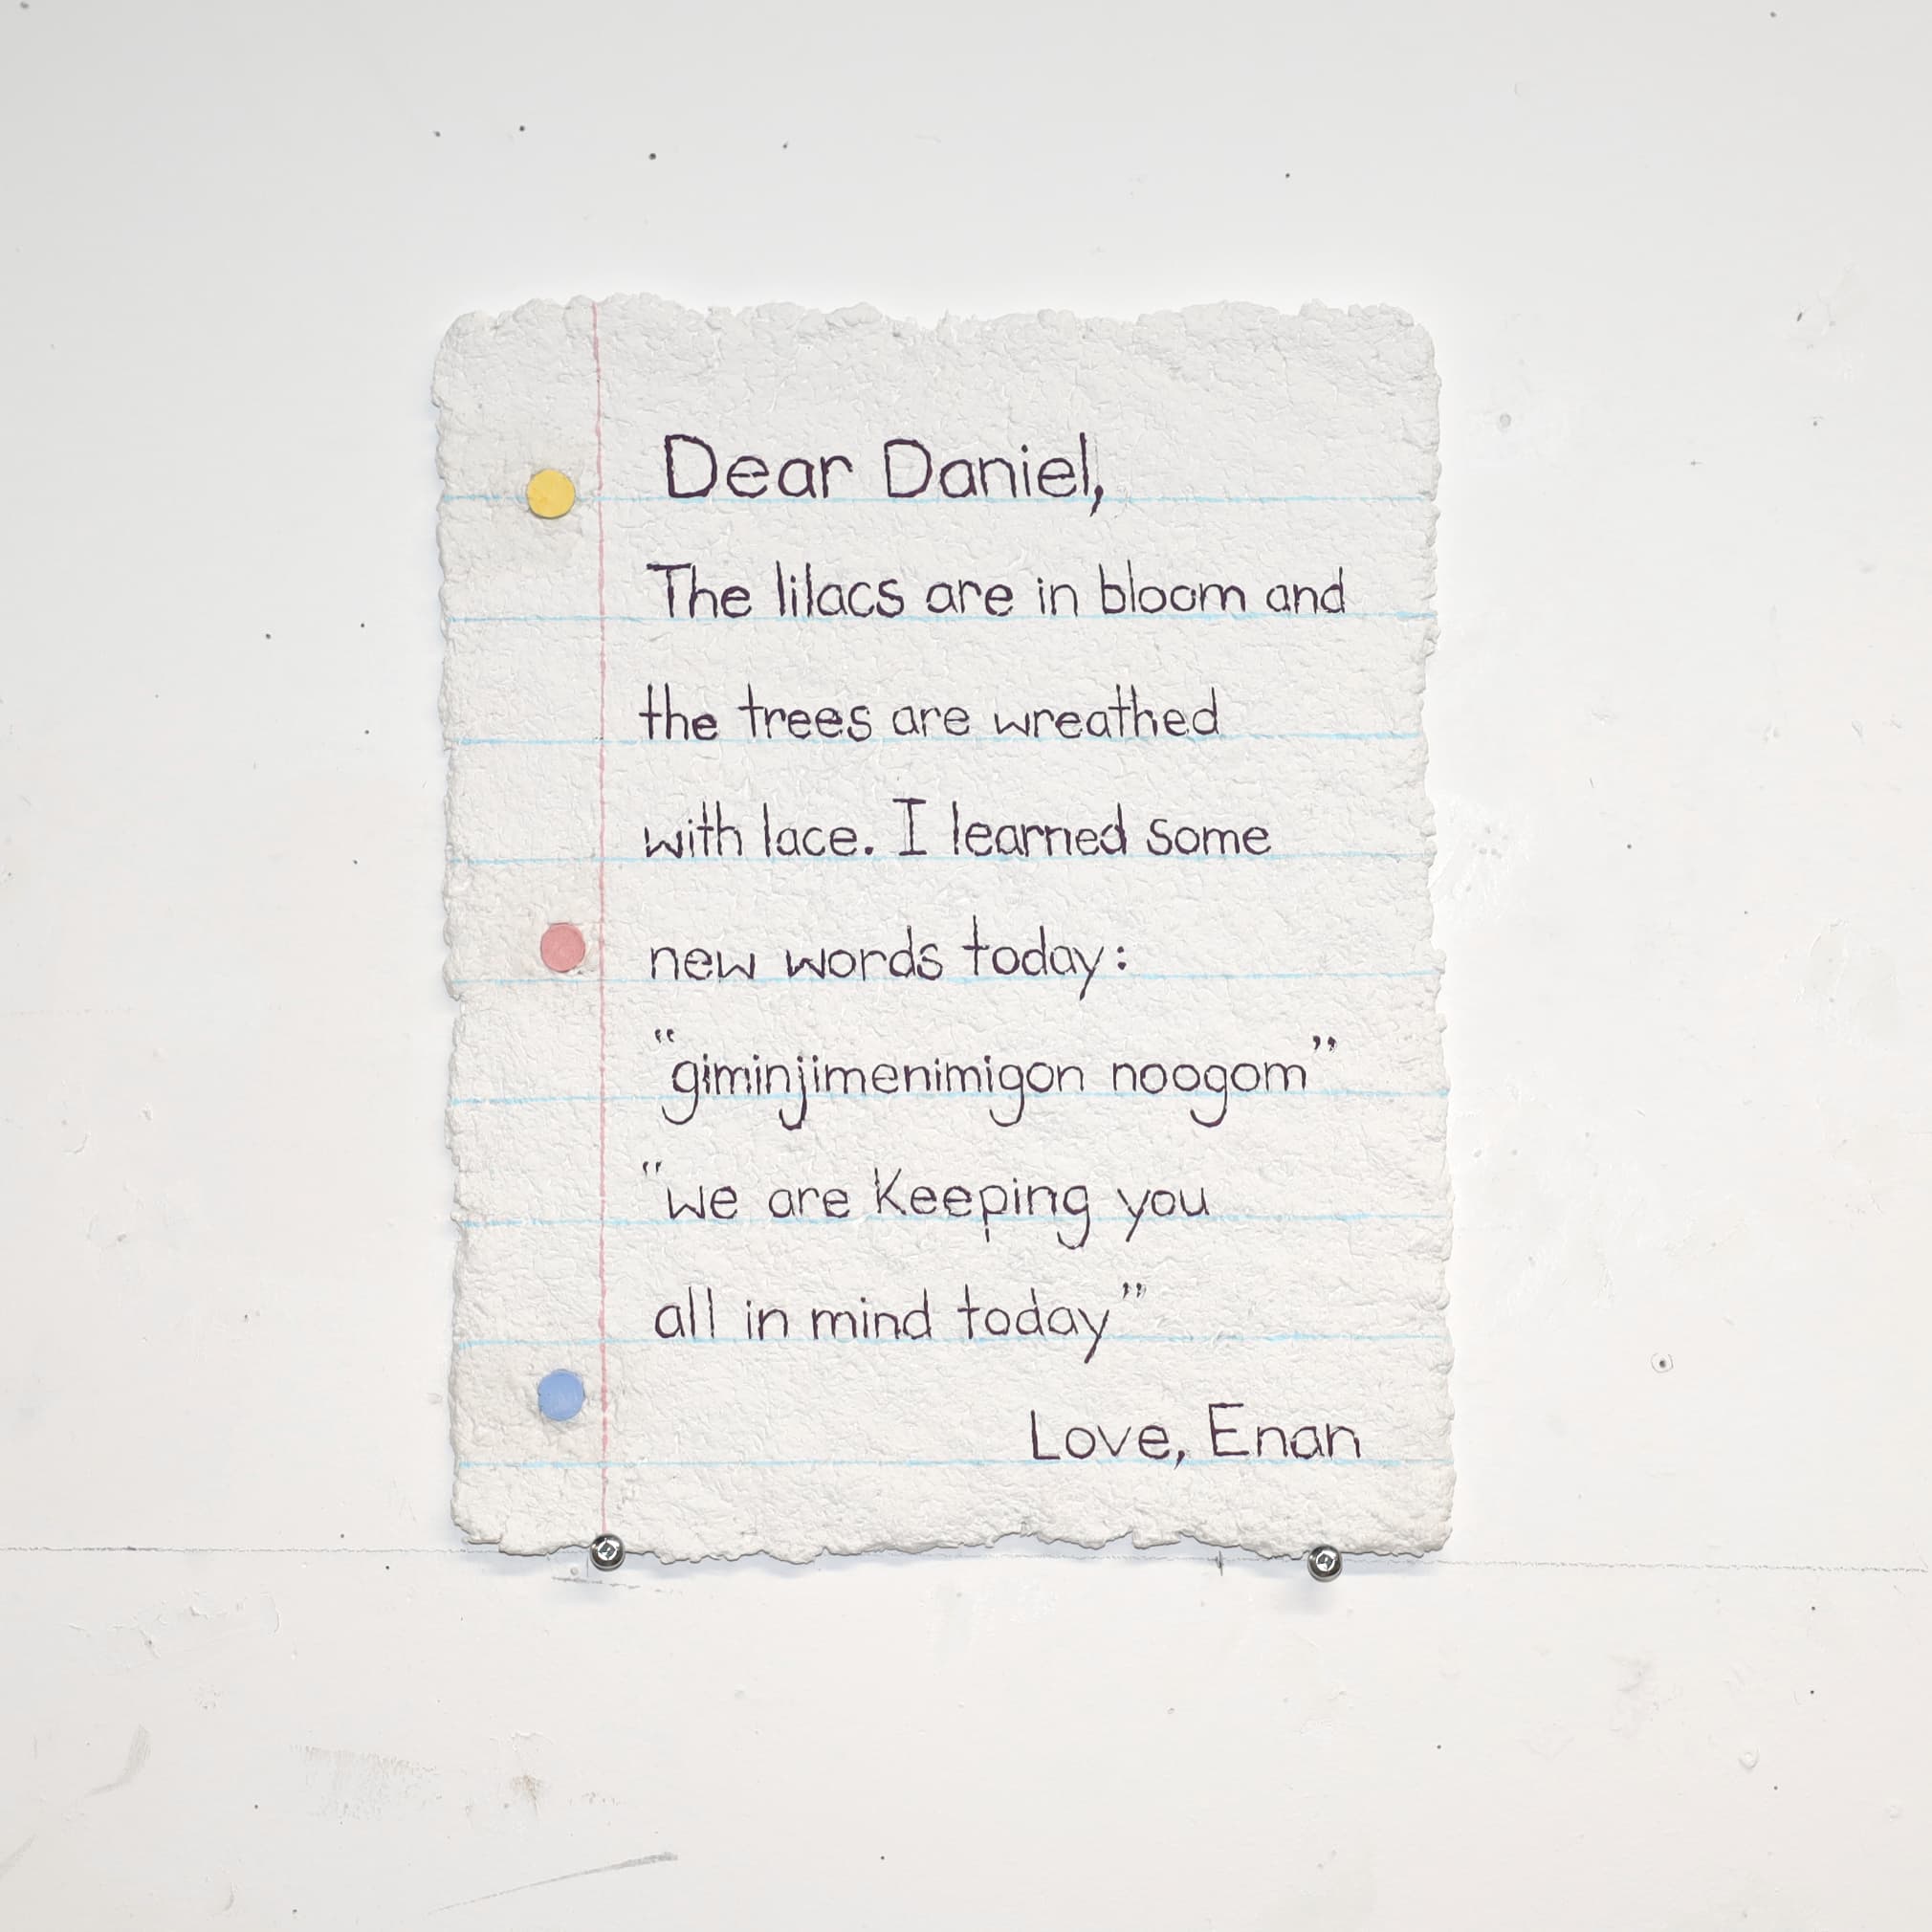 Dear Daniel,
The lilacs are in bloom and
the trees are wreathed
with lace. I learned some
new words today:
“giminjimenimigon noogom”
“we are Keeping you
all in mind today”
Love, Enan